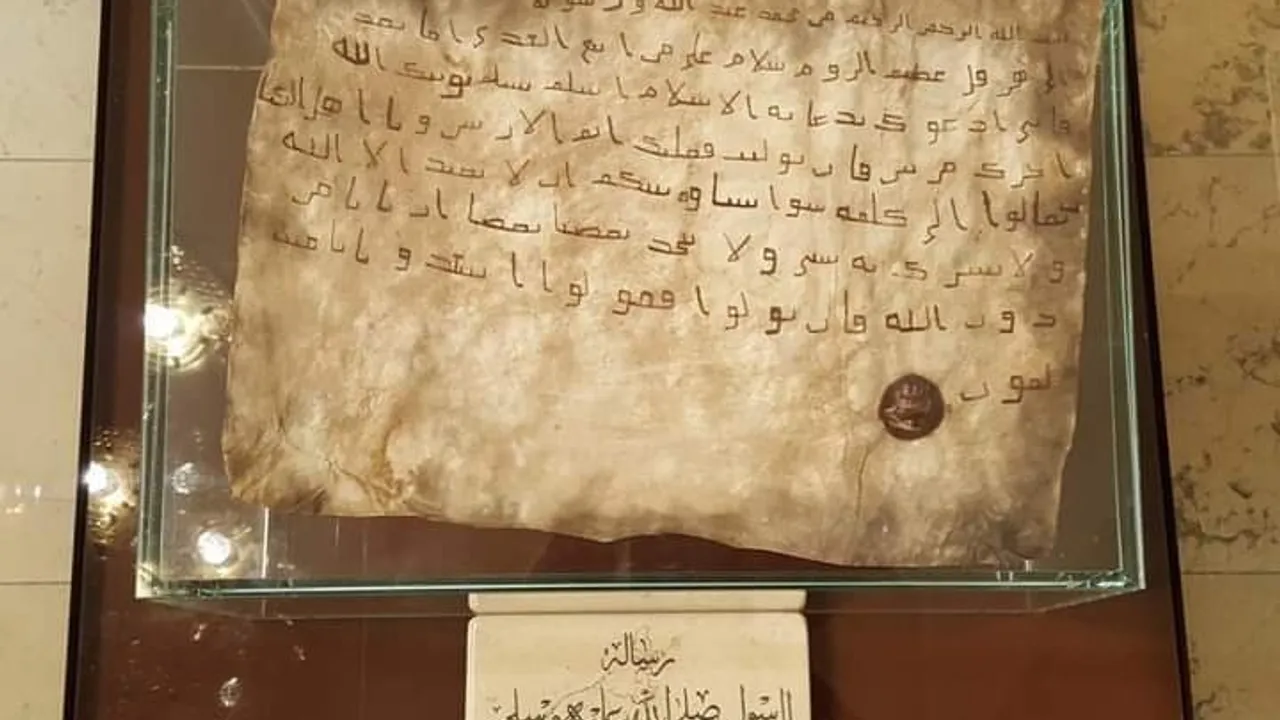 بسم الله الرحمن الرحيم من محمد عبد الله ورسوله
الى هرقل عظيم الروم سلام على من اتبع الهدى اما بعد
فانى ادعوك بدعاية الاسلام اسلم تسلم يوتك الله
اجرك مرتين فان توليت فعليك اثم الاريسين ويا اهل الكتا
ب تعالوا الى كلمة سوا بيننا وبينكم ان لا نعبد الا الله
ولا نشرك به شى ولا يتخذ بعضنا بعضا اربابا من
دون الله فان تولوا فقولوا اشهدوا بانا مسـ
لمون
رسالة
الرسول صلى الله عليه وسلم